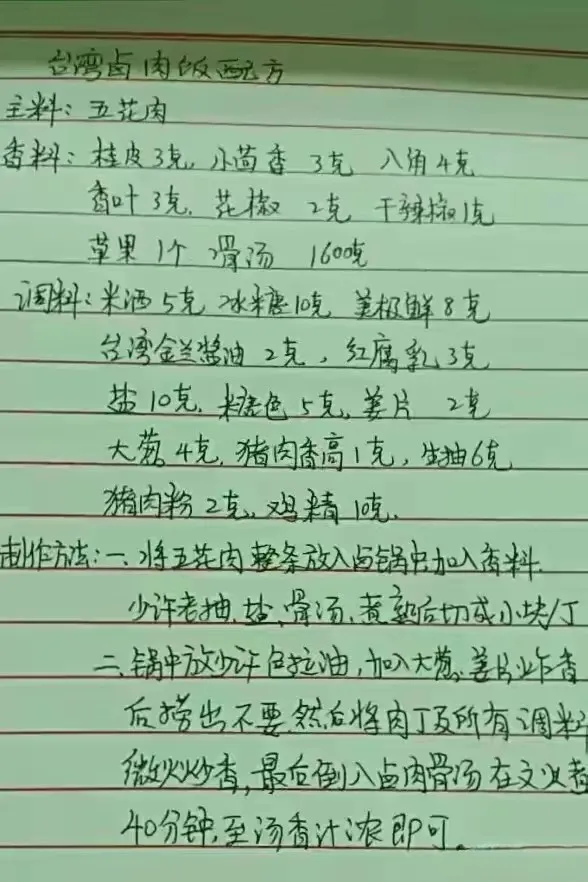 台湾卤肉饭配方
主料：五花肉
香料：桂皮3克，小茴香 3克 八角4克
香叶3克，花椒 2克 干辣椒1克
草果 1个 骨汤 1600克
调料：米酒5克 冰糖10克 美极鲜8克
台湾金兰酱油 2克，红腐乳3克
盐10克，糖色5克，姜片 2克
大葱4克，猪肉香膏1克，生抽6克
猪肉粉2克，鸡精10克，
制作方法：一、将五花肉整条放入卤锅中加入香料，
少许老抽，盐，骨汤，煮熟后切成小块/丁
二、锅中放少许色拉油，加入大葱，姜片炸香
后捞出不要，然后将肉丁及所有调料
微火炒香，最后倒入卤肉骨汤在文火煮
40分钟，至汤香汁浓即可。